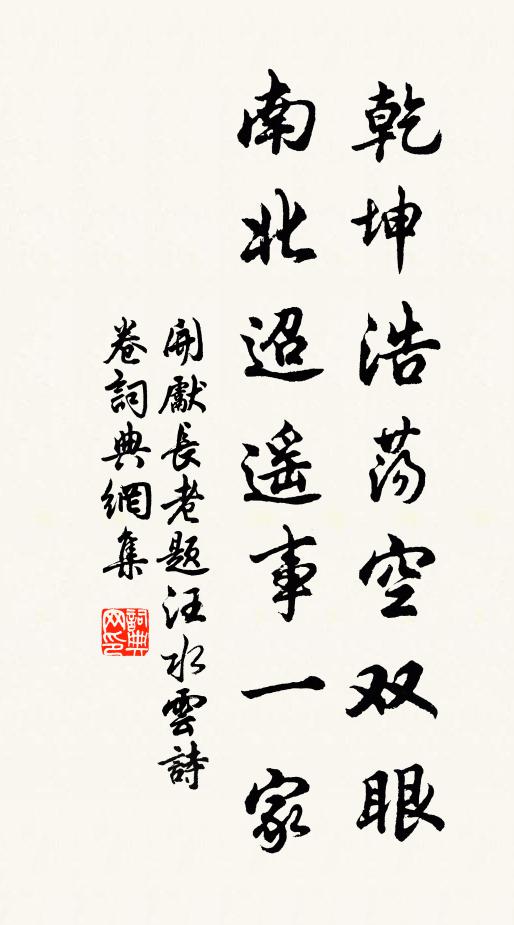 乾坤浩荡空双眼
南北迢遥事一家
開獻長老题汪水雲詩
卷詞典網集
詞典網印